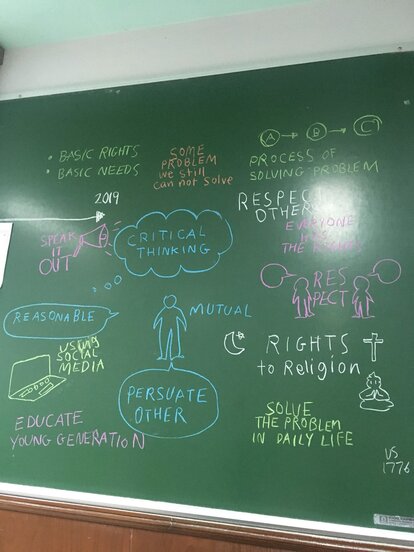 • BASIC RIGHTS
• BASIC NEEDS
SOME
PROBLEM
we still
can not solve
A → B → C
PROCESS OF
SOLVING PROBLEM
2019
SPEAK
IT
OUT
CRITICAL
THINKING
RESPECT
OTHERS
EVERYONE
HAS
THE
RES
PECT
REASONABLE
MUTUAL
USING
SOCIAL
MEDIA
RIGHTS
to RELigion
PERSUATE
OTHER
EDUCATE
YOUNG GENERATION
SOLVE
THE PROBLEM
IN DAILY LIFE
US
1776